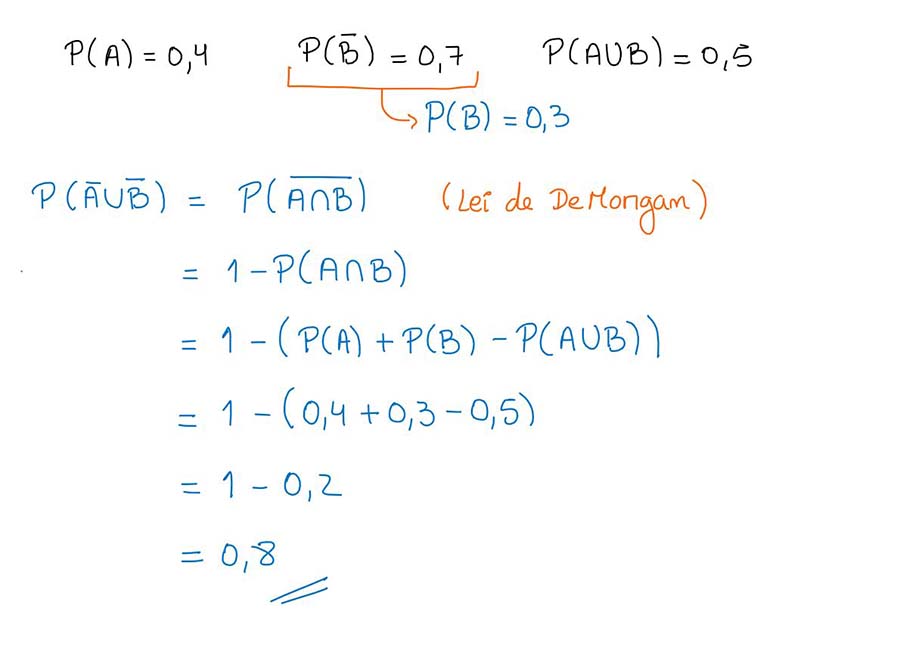 P(A) = 0,4 P(B̅) = 0,7 P(A∪B) = 0,5
P(B) = 0,3
P(A̅∪B̅) = P(A̅∩̅B̅) (Lei de DeMorgan)
= 1 - P(A∩B)
= 1 - (P(A) + P(B) - P(A∪B))
= 1 - (0,4 + 0,3 - 0,5)
= 1 - 0,2
= 0,8